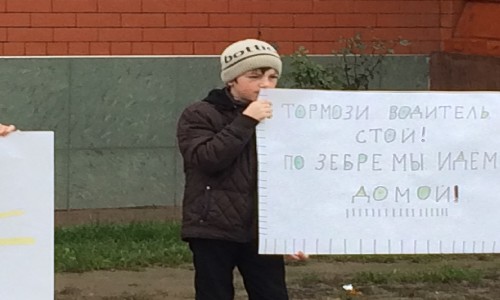 botto
ТОРМОЗИ ВОДИТЕЛЬ
СТОЙ!
ПО ЗЕБРЕ МЫ ИДЕМ
ДОМОЙ!